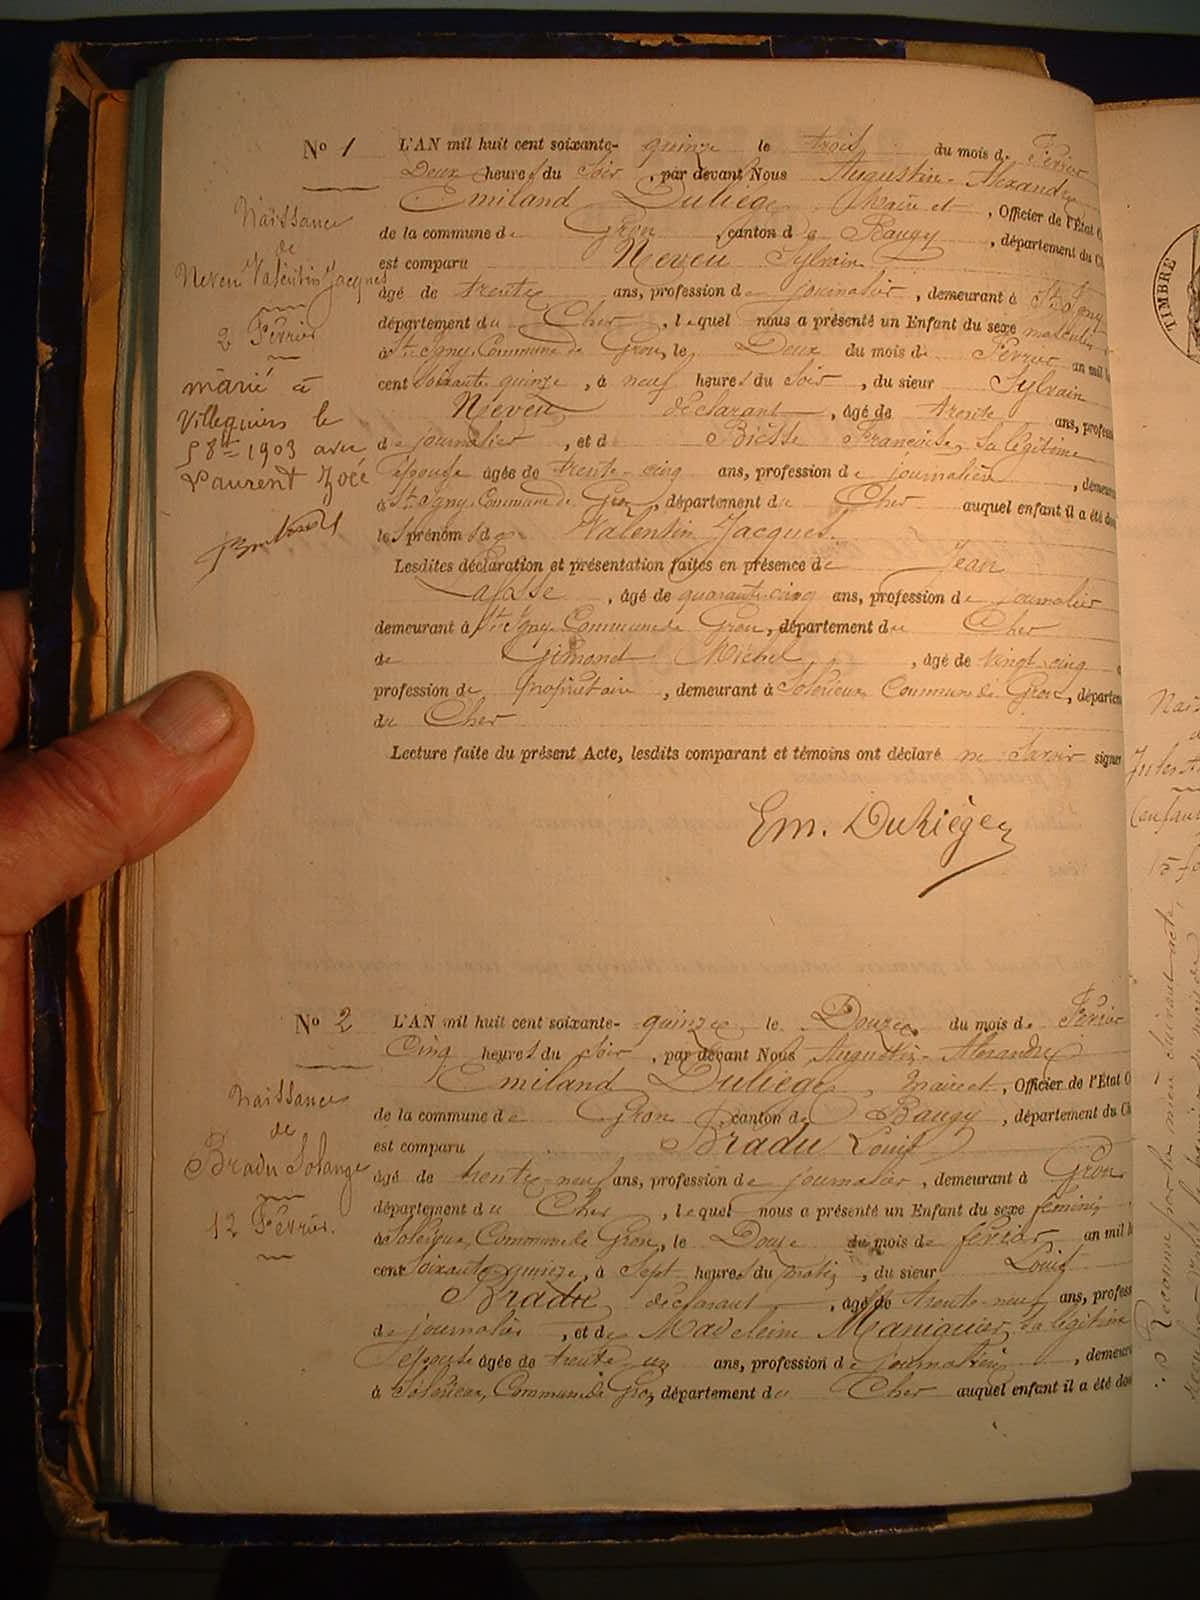 N° 1
Naissance
de
Neveu Valentin Jacques
2 Février
marié à
Villequiers le
5 8bre 1903 avec
Laurent Zoé
L'AN mil huit cent soixante-quinze le trois du mois de Février
Deux heures du soir, par devant Nous Augustin-Alexandre
Emiland Duliège, Maire et, Officier de l'Etat C
de la commune de Gron, canton de Baugy, département du C
est comparu Neveu Sylvain
âgé de trente ans, profession de journalier, demeurant à St Igny
département du Cher, lequel nous a présenté un Enfant du sexe masculin
à St Igny, Commune de Gron, le Deux du mois de Février an mil h
cent soixante quinze, à neuf heures du soir, du sieur Sylvain
Neveu déclarant, âgé de trente ans, profess
de journalier, et de Françoise, sa légitime
épouse âgée de trente-cinq ans, profession de journalière, demeur
à St Igny, Commune de Gron, département du Cher auquel enfant il a été don
les prénoms de Valentin Jacques.
Lesdites déclaration et présentation faites en présence de Jean
, âgé de quarante cinq ans, profession de journalier
demeurant à St Igny, Commune de Gron, département du Cher
de Gimond Michel, âgé de vingt-cinq a
profession de propriétaire, demeurant à Solérieux Commune de Gron, départem
du Cher
Lecture faite du présent Acte, lesdits comparant et témoins ont déclaré ne savoir signer
Em. Duliège
N° 2
Naissance
de
Bradu Solange
12 Février.
L'AN mil huit cent soixante-quinze le Douze du mois de Février
Cinq heures du soir, par devant Nous Augustin-Alexandre
Emiland Duliège, Maire et, Officier de l'Etat C
de la commune de Gron, canton de Baugy, département du Ch
est comparu Bradu Louis
âgé de trente-neuf ans, profession de journalier, demeurant à Gron
département du Cher, lequel nous a présenté un Enfant du sexe féminin
à Solérieux, Commune de Gron, le Douze du mois de février an mil h
cent soixante quinze, à sept heures du matin, du sieur Louis
Bradu déclarant, âgé de trente-neuf ans, profess
de journalier, et de Madeleine Maniguier, sa légitime
épouse âgée de trente-un ans, profession de journalière, demeur
à Solérieux, Commune de Gron, département du Cher auquel enfant il a été don
TIMBRE